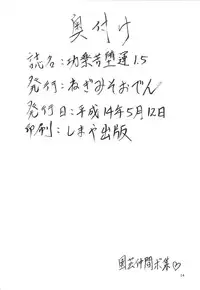 奥付け
誌名：功楽苦堕運1.5
発行：ねぎみそおでん
発行日：平成14年5月12日
印刷：しまや出版
同芸仲間求集♡